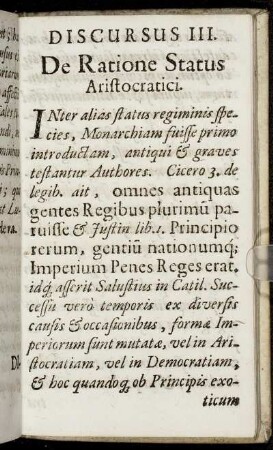 DISCURSUS III.
De Ratione Status
Aristocratici.
INter alias status regiminis spe-
cies, Monarchiam fuisse primo
introductam, antiqui & graves
testantur Authores. Cicero 3. de
legib. ait, omnes antiquas
gentes Regibus plurimū pa-
ruisse & Justin lib.1. Principio
rerum, gentiū nationumq;
Imperium Penes Reges erat.
idq; asserit Salustius in Catil. Suc-
cessu verò temporis ex diversis
causis & occasionibus, formæ Im-
periorum sunt mutatæ, vel in Ari-
stocratiam, vel in Democratiam,
& hoc quandoq; ob Principis exo-
ticum